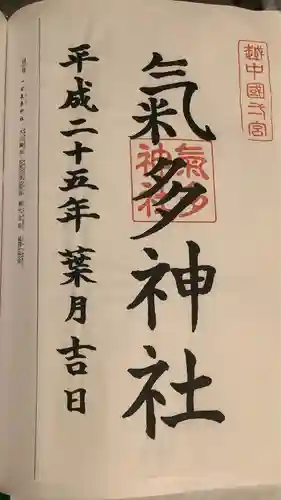 越中國一宮
氣多神社
氣多
神社
平成二十五年葉月吉日